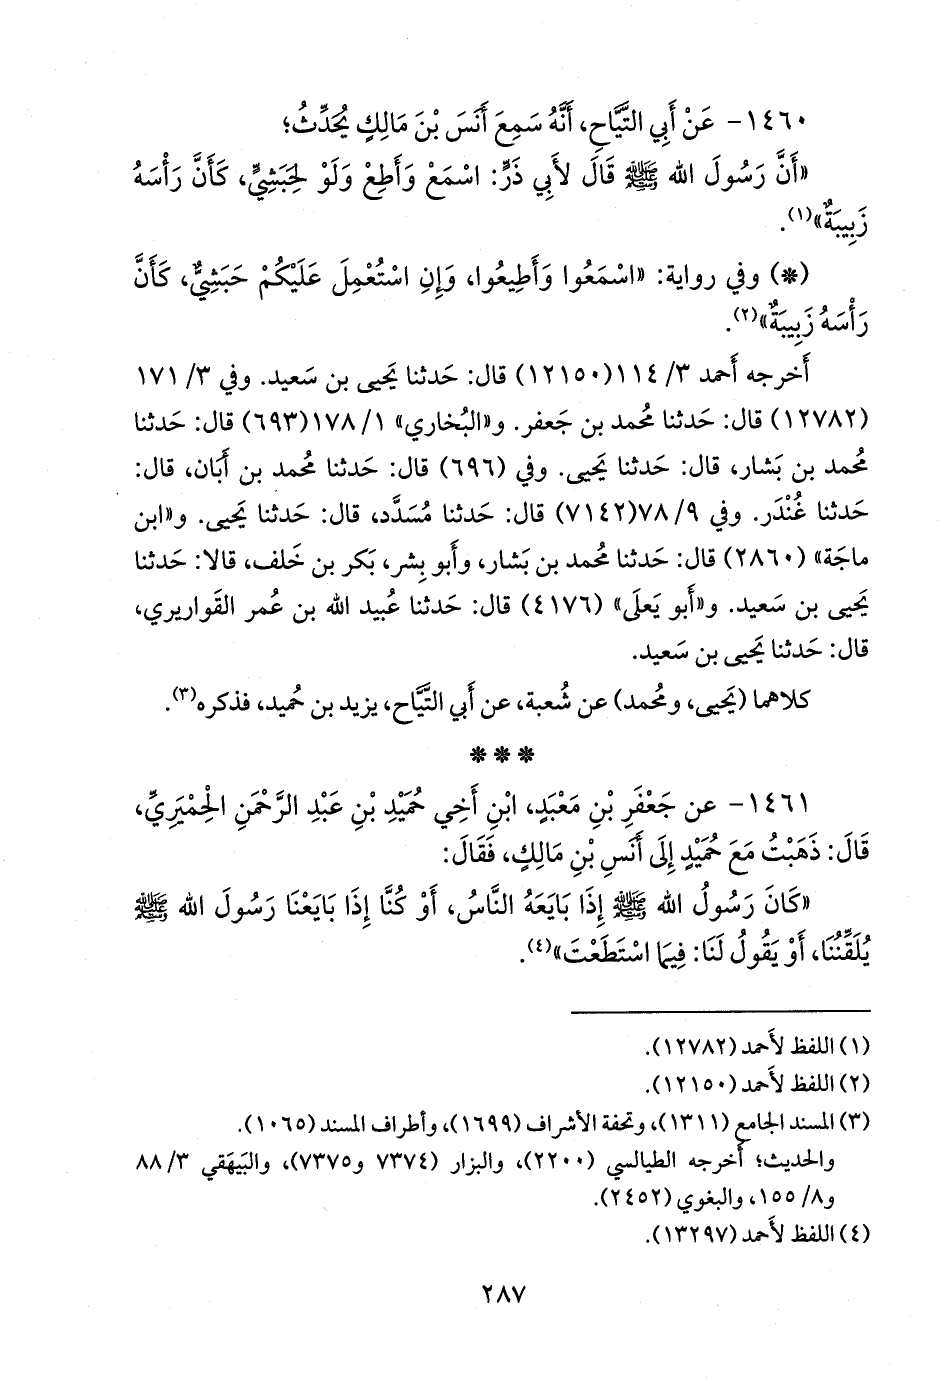 ١٤٦٠- عَنْ أَبِي التَّيَّاحِ، أَنَّهُ سَمِعَ أَنَسَ بْنَ مَالِكٍ يُحَدِّثُ؛
«أَنَّ رَسُولَ الله ﷺ قَالَ لأَبِي ذَرٍّ: اسْمَعْ وَأَطِعْ وَلَوْ لِحَبَشِيٍّ، كَأَنَّ رَأْسَهُ
زَبِيبَةٌ»(١).
(*) وفي رواية: «اسْمَعُوا وَأَطِيعُوا، وَإِنِ اسْتُعْمِلَ عَلَيْكُمْ حَبَشِيٌّ، كَأَنَّ
رَأْسَهُ زَبِيبَةٌ»(٢).
أَخرجه أَحمد ٣/ ١١٤(١٢١٥٠) قال: حَدثنا يَحيى بن سَعيد. وفي ٣/ ١٧١
(١٢٧٨٢) قال: حَدثنا مُحمد بن جَعفر. و«البُخاري» ١/ ١٧٨(٦٩٣) قال: حَدثنا
مُحمد بن بَشار، قال: حَدثنا يَحيى. وفي (٦٩٦) قال: حَدثنا مُحمد بن أَبَان، قال:
حَدثنا غُنْدَر. وفي ٩/ ٧٨(٧١٤٢) قال: حَدثنا مُسَدَّد، قال: حَدثنا يَحيى. و«ابن
ماجَة» (٢٨٦٠) قال: حَدثنا مُحمد بن بَشار، وأَبو بِشر، بَكر بن خَلف، قالا: حَدثنا
يَحيى بن سَعيد. و«أَبو يَعلَى» (٤١٧٦) قال: حَدثنا عُبيد الله بن عُمر القَواريري،
قال: حَدثنا يَحيى بن سَعيد.
كلاهما (يَحيى، ومُحمد) عن شُعبة، عن أَبي التَّيَّاح، يزيد بن حُميد، فذكره(٣).
* * *
١٤٦١- عن جَعْفَرِ بْنِ مَعْبَدٍ، ابْنِ أَخِي حُمَيْدِ بْنِ عَبْدِ الرَّحْمَنِ الْحِمْيَرِيِّ،
قَالَ: ذَهَبْتُ مَعَ حُمَيْدٍ إِلَى أَنَسِ بْنِ مَالِكٍ، فَقَالَ:
«كَانَ رَسُولُ الله ﷺ إِذَا بَايَعَهُ النَّاسُ، أَوْ كُنَّا إِذَا بَايَعْنَا رَسُولَ الله ﷺ
يُلَقِّنُنَا، أَوْ يَقُولُ لَنَا: فِيمَا اسْتَطَعْتَ»(٤).
(١) اللفظ لأَحمد (١٢٧٨٢).
(٢) اللفظ لأَحمد (١٢١٥٠).
(٣) المسند الجامع (١٣١١)، وتحفة الأشراف (١٦٩٩)، وأطراف المسند (١٠٦٥).
والحديث؛ أَخرجه الطيالسي (٢٢٠٠)، والبزار (٧٣٧٤ و٧٣٧٥)، والبَيهَقي ٣/ ٨٨
و٨/ ١٥٥، والبغوي (٢٤٥٢).
(٤) اللفظ لأَحمد (١٣٢٩٧).
٢٨٧